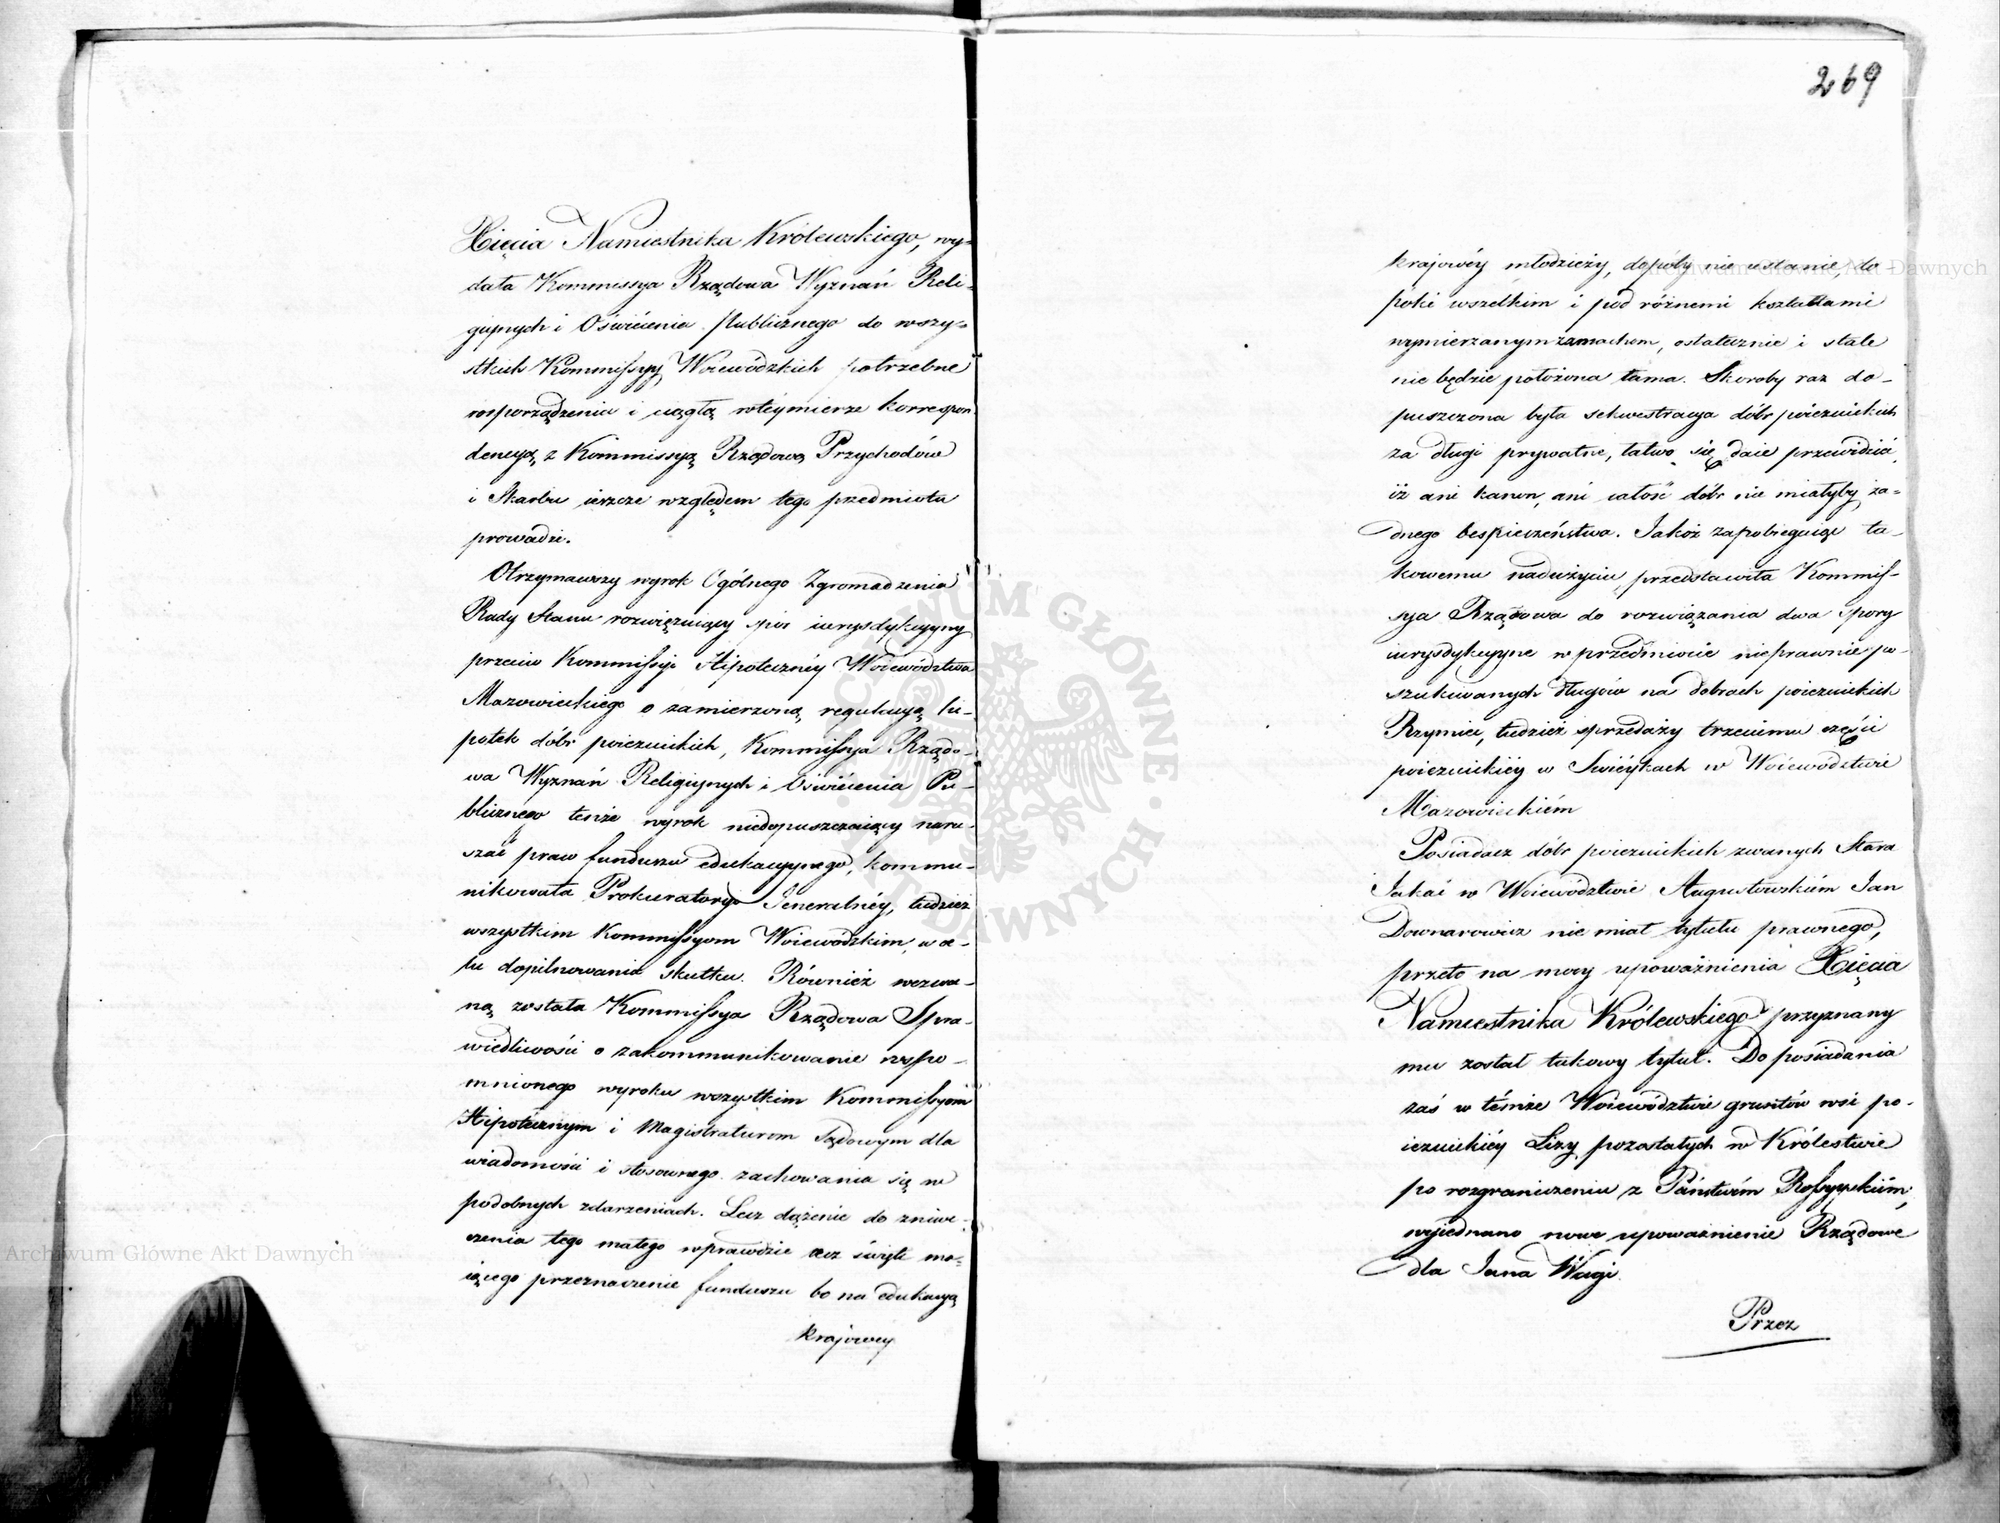 Xięcia Namiestnika Królewskiego, wy-
dała Kommissya Rządowa Wyznań Reli-
giynych i Oświecenia Publicznego do wszy-
stkich Kommissyy Woiewódzkich potrzebne
rosporządzenia i ciągłą wteymierze korrespon
dencyą z Kommissyą Rządową Przychodów
i Skarbu ieszcze względem tego przedmiotu
prowadzi.
Otrzymawszy wyrok Ogólnego Zgromadzenia
Rady Stanu rozwięzuiący spór iurysdykcyyny
przeciw Kommissyi Hipoteczney Woiewództwa
Mazowieckiego o zamierzoną regulacyą hi-
potek dóbr poiezuickich, Kommissya Rządo-
wa Wyznań Religiynych i Oświecenia Pu-
blicznego tenże wyrok niedopuszczaiący naru-
szać praw funduszu edukacyynego, kommu-
nikowała Prokuratoryi Jeneralnéy, tudzież
wszystkim Kommissyom Woiewódzkim, w ce-
lu dopilnowania skutku. Również wezwa-
ną została Kommissya Rządowa Spra-
wiedliwości o zakommunikowanie wspo-
mnionego wyroku wszystkim Kommissyom
Hipotecznym i Magistraturom Sądowym dla
wiadomości i stosownego zachowania się w
podobnych zdarzeniach. Lecz dążenie do zniwe-
czenia tego małego wprawdzie lecz święte ma-
iącego przeznaczenie funduszu bo na edukacyą
krajowey
269
krajowéy młodzieży, dopóty nie ustanie, do
póki wszelkim i pod różnemi kształtami
wymierzanym zamachom, ostatecznie i stale
nie będzie położona tama. Skoroby raz do-
puszczona była sekwestracya dóbr poiezuickich
za długi prywatne, łatwo się daie przewidzieć,
iż ani kanon, ani całość dóbr nie miałyby ża-
dnego bespieczeństwa. Jakoż zapobiegaiąc ta-
kowemu nadużyciu, przedstawiła Kommis-
sya Rządowa do rozwiązania dwa spory
iurysdykcyyne w przedmiocie nieprawnie po-
szukiwanych długów na dobrach poiezuickich
Rzymiec, tudzież sprzedaży trzeciemu części
poiezuickiéy w Święykach w Woiewodztwie
Mazowieckiém
Posiadacz dóbr poiezuickich zwanych Stara
Jakać w Woiewództwie Augustowskiém Jan
Downarowicz nie miał tytułu prawnego,
przeto na mocy upoważnienia Xięcia
Namiestnika Królewskiego przyznany
mu został takowy tytuł. Do posiadania
zaś w témże Woiewodztwie gruntów wsi po-
iezuickiéy Lizy pozostałych w Królestwie
po rozgraniczeniu z Państwém Rossyyskiém,
wyjednano nowe upoważnienie Rządowe
dla Jana Wagi.
Przez
Archiwum Główne Akt Dawnych
Archiwum Główne Akt Dawnych
ARCHIWUM GŁÓWNE AKT DAWNYCH